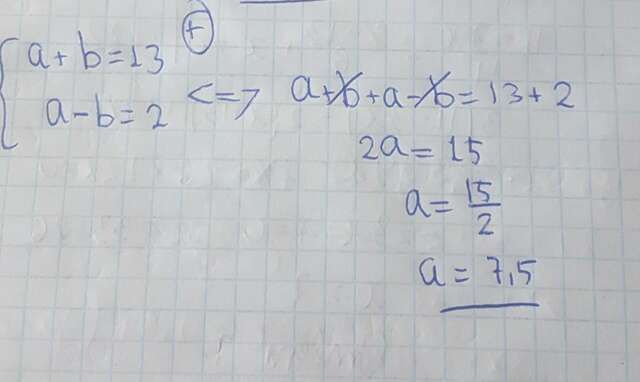 a + b = 13 (+)
a - b = 2 <=> a + b + a - b = 13 + 2
2a = 15
a = 15/2
a = 7,5